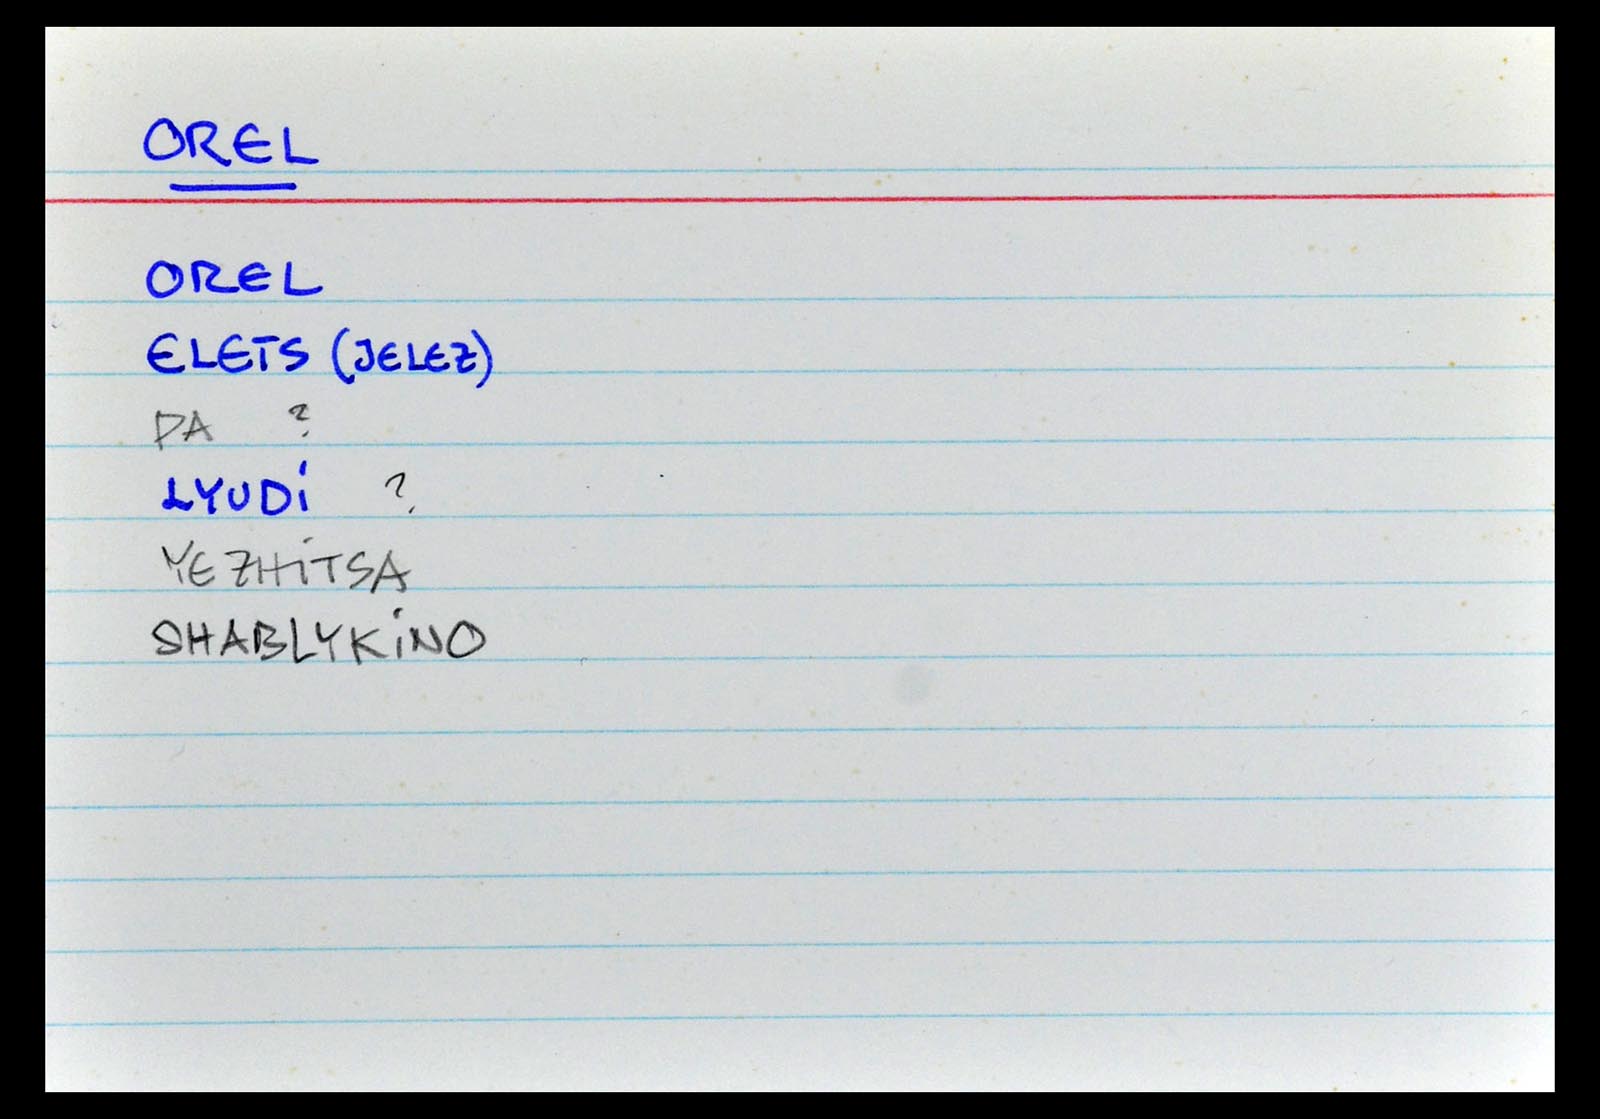 OREL
OREL
ELETS (JELEZ)
DA ?
LYUDI ?
YEZHITSA
SHABLYKINO